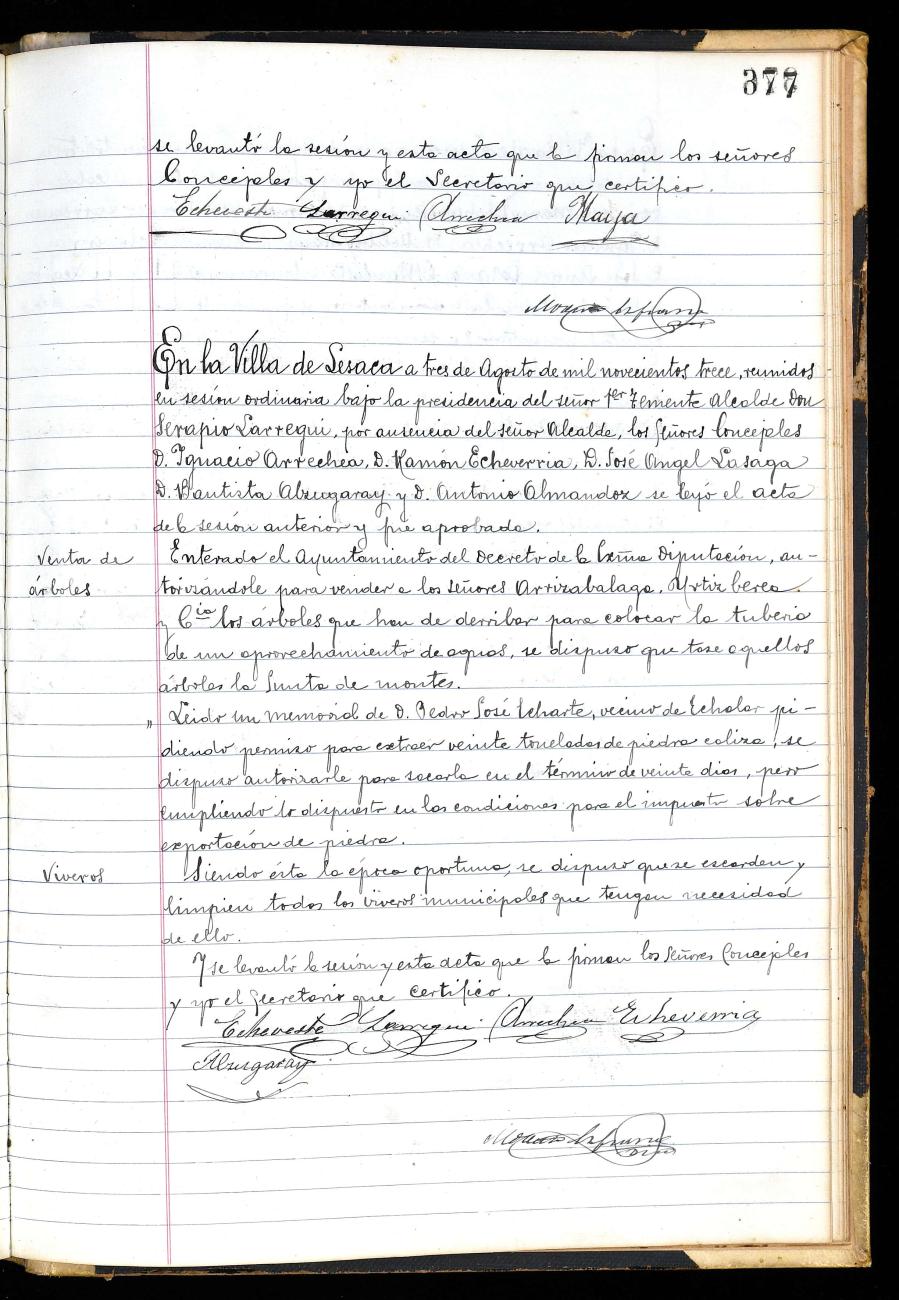 377
se levantó la sesión y esta acta que la firman los señores
Concejales y yo el Secretario que certifico.
Echeveste Larregui Arrechea Maya
En la Villa de Lesaca a tres de Agosto de mil novecientos trece, reunidos
en sesión ordinaria bajo la presidencia del señor 1er Teniente Alcalde Don
Serapio Larregui, por ausencia del señor Alcalde, los Señores Concejales
D. Ignacio Arrechea, D. Ramón Echeverria, D. José Angel Lasaga
D. Bautista Alzugaray y D. Antonio Almandoz se leyó el acta
de la sesión anterior y fué aprobada.
Venta de
árboles
Enterado el Ayuntamiento del Decreto de la Exma Diputación, au-
torizándole para vender a los señores Arrizabalaga, Urtizberea
y Cia los árboles que han de derribar para colocar la tuberia
de un aprovechamiento de aguas, se dispuso que tase aquellos
árboles la Junta de montes.
" Leido un memorial de D. Pedro José Icharte, vecino de Echalar pi-
diendo permiso para extraer veinte toneladas de piedra caliza, se
dispuso autorizarle para sacarla en el término de veinte dias, pero
cumpliendo lo dispuesto en las condiciones para el impuesto sobre
exportación de piedra.
Viveros
Siendo ésta la época oportuna, se dispuso que se escarden y
limpien todos los viveros municipales que tengan necesidad
de ello.
Y se levantó la sesión y esta acta que la firman los Señores Concejales
y yo el Secretario que certifico.
Echeveste Larregui Arrechea Echeverria
Alzugaray